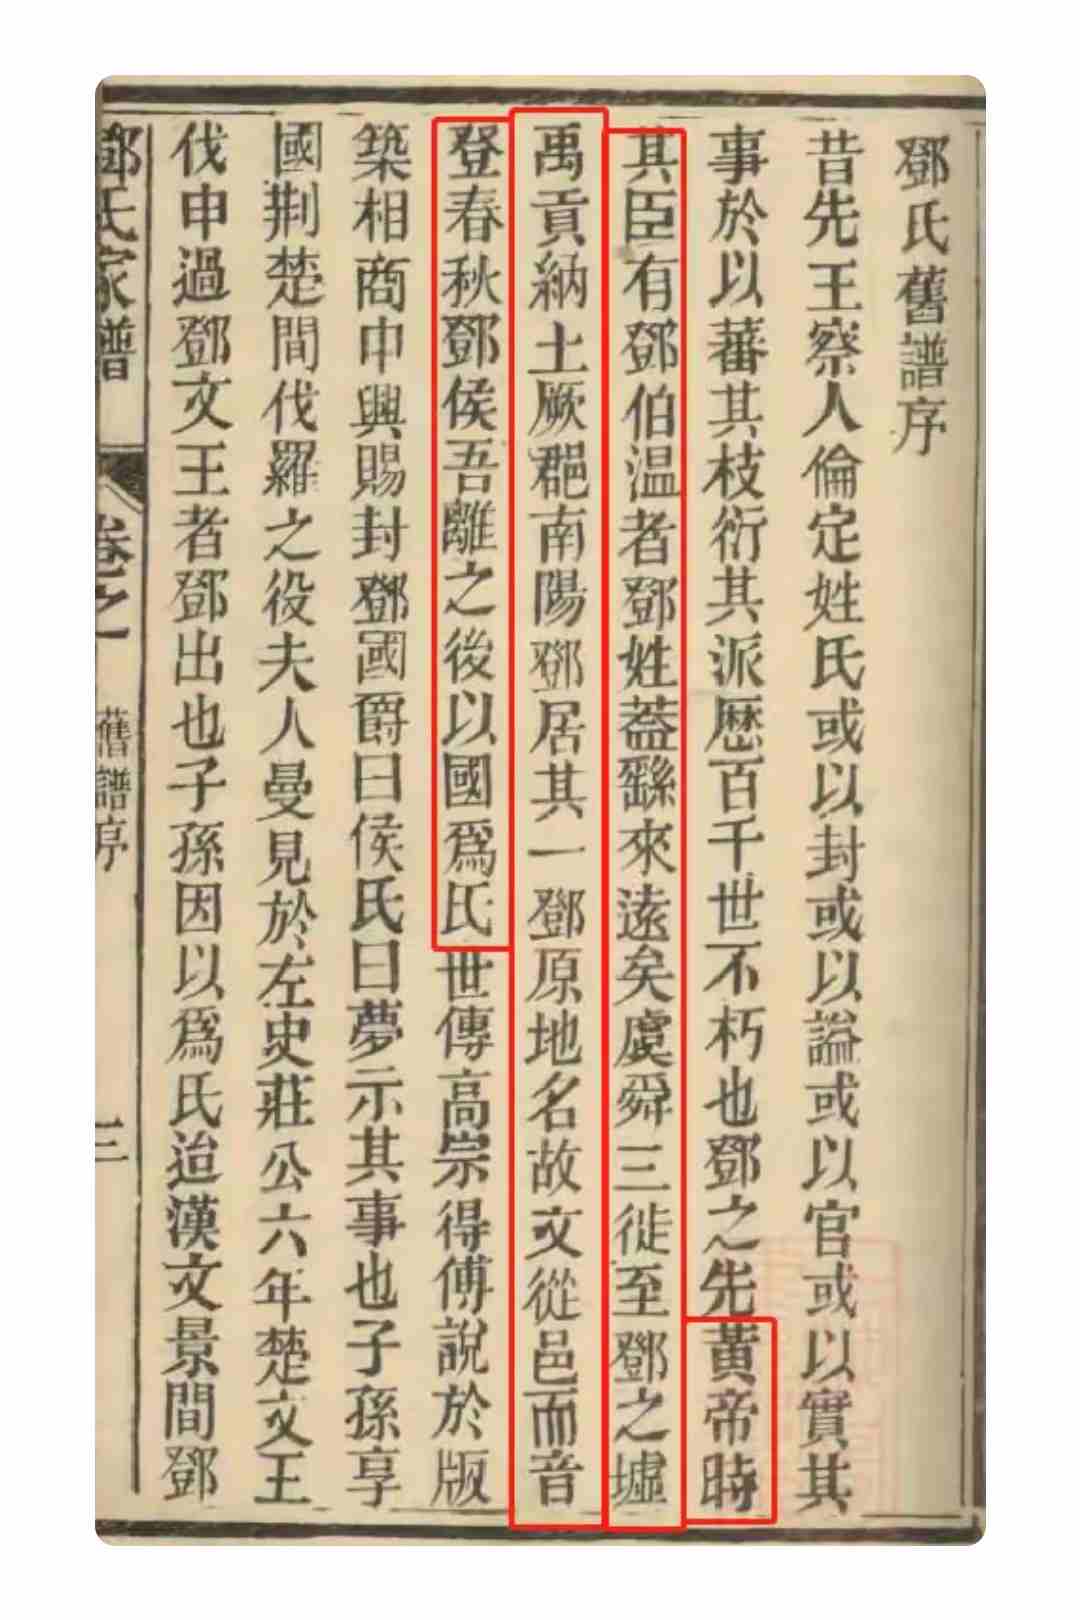 鄧氏舊譜序
昔先王察人倫定姓氏或以封或以諡或以官或以實其
事於以蕃其枝衍其派歷百千世不朽也鄧之先黃帝時
其臣有鄧伯温者鄧姓蓋繇來遠矣虞舜三徙至鄧之墟
禹貢納土厥郡南陽鄧居其一鄧原地名故文從邑而音
登春秋鄧侯吾離之後以國爲氏世傳高宗得傅說於版
築相商中興賜封鄧國爵曰侯氏曰夢示其事也子孫享
國荆楚間伐羅之役夫人曼見於左史莊公六年楚文王
伐申過鄧文王者鄧出也子孫因以爲氏迨漢文景間鄧
鄧氏家譜
卷之一
舊譜序
三